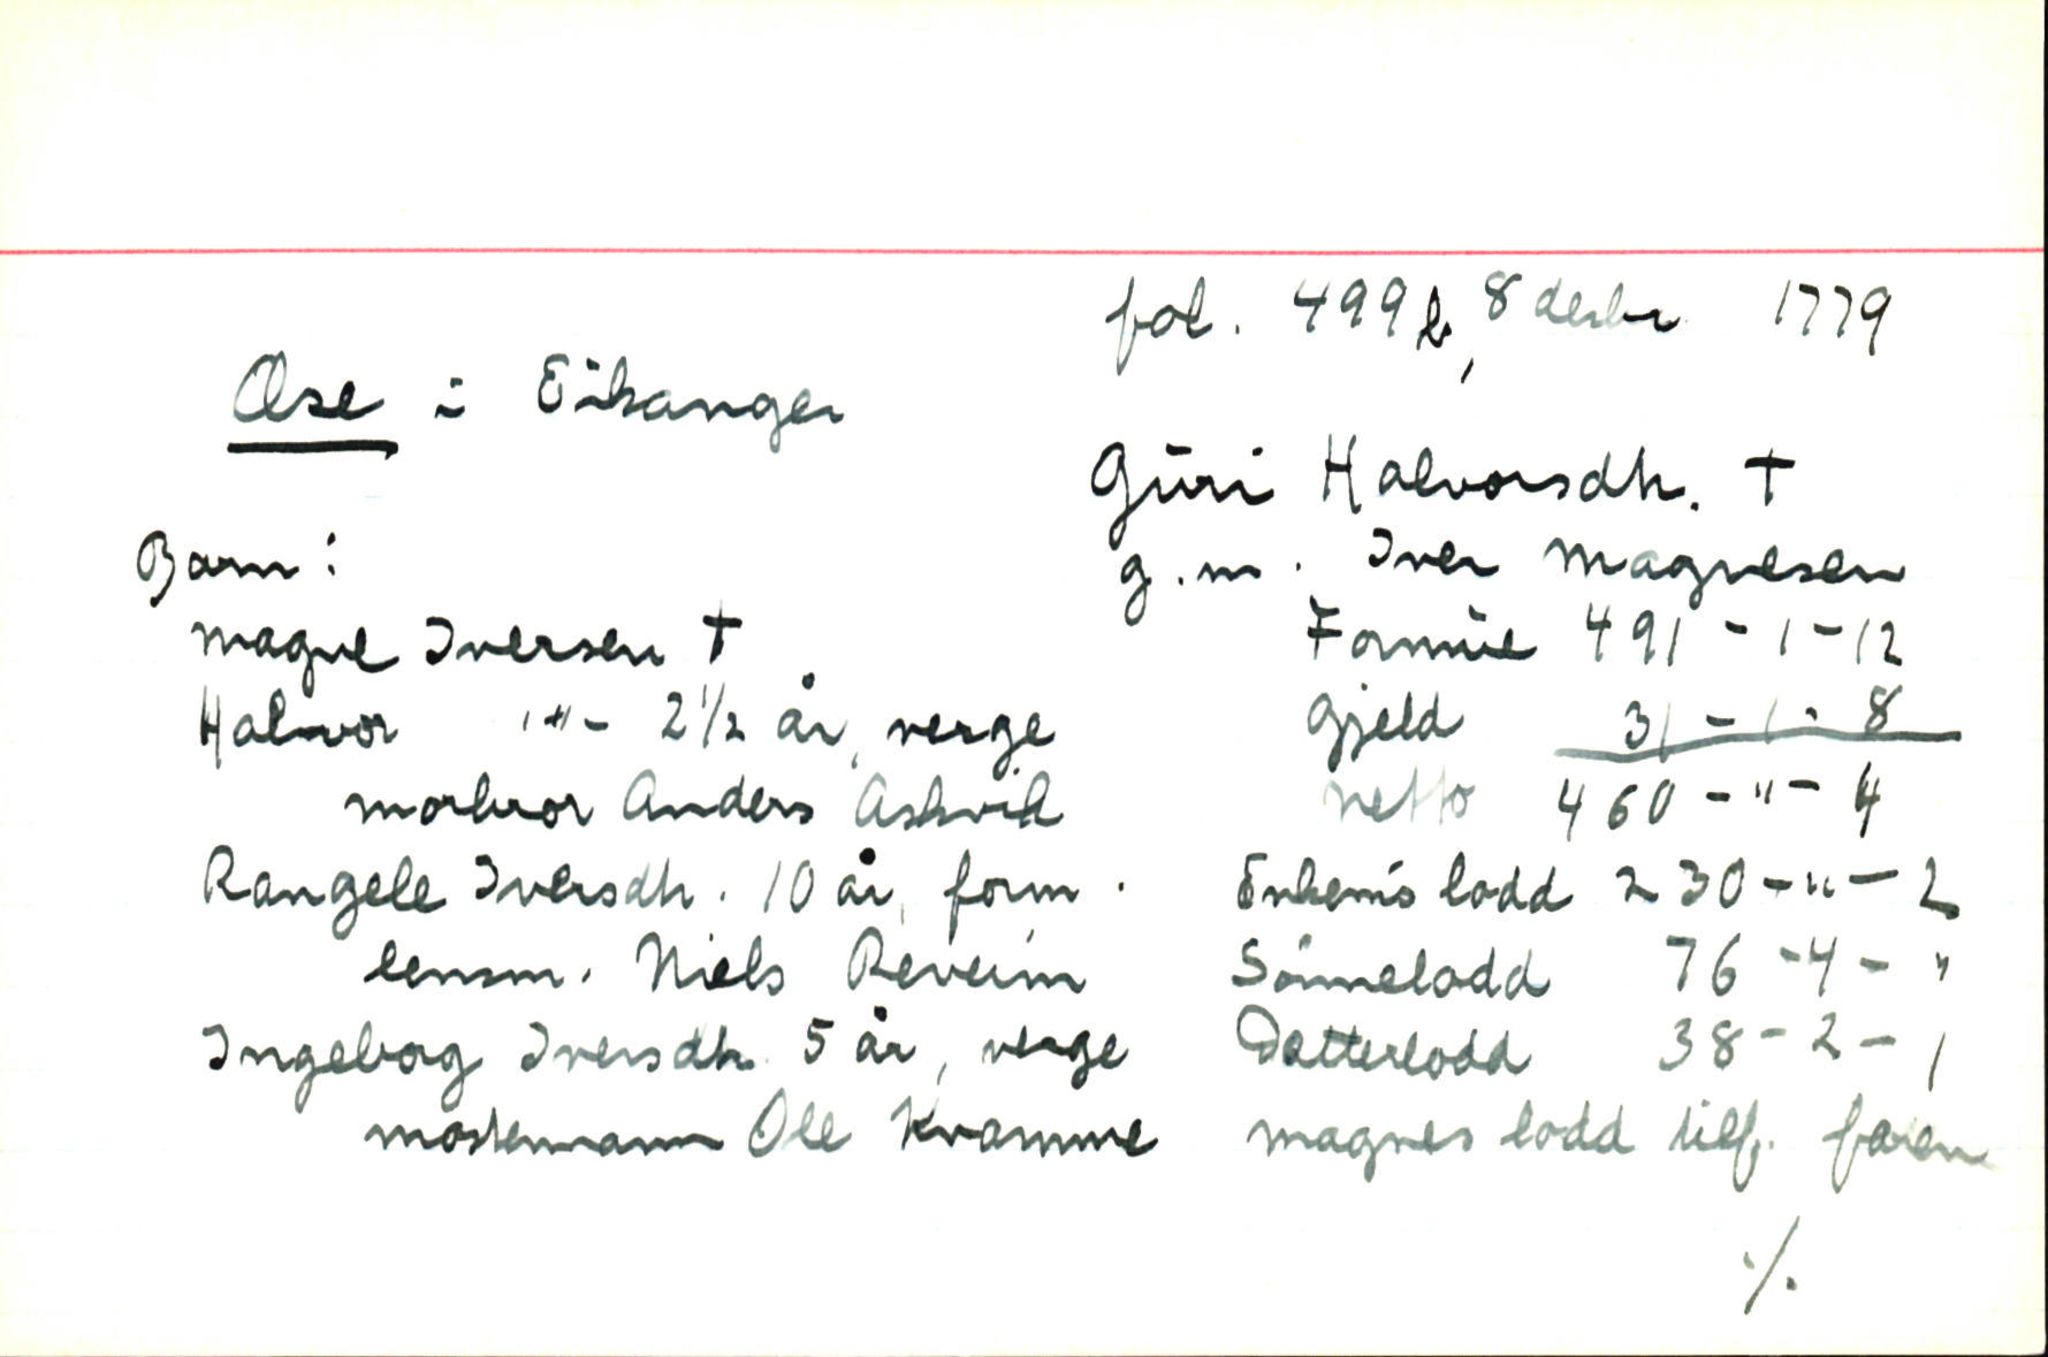 fol. 499 b, 8 desbr 1779
Ose i Eikanger
Guri Halvorsdtr. †
g.m. Iver Magnesen
Barn:
Magne Iversen †
Halvor -"- 2 1/2 år, verge
morbror Anders Askvik
Rangele Iversdtr. 10 år, form.
lensm. Niels Reveim
Ingeborg Iversdtr. 5 år, verge
mostermann Ole Kvamme
Formue 491 - 1 - 12
Gjeld 31 - 1 - 8
netto 460 - " - 4
Enkem's lodd 230 - " - 2
Sønnelodd 76 - 4 - "
Datterlodd 38 - 2 - 1
Magnes lodd tilf. faren
./.